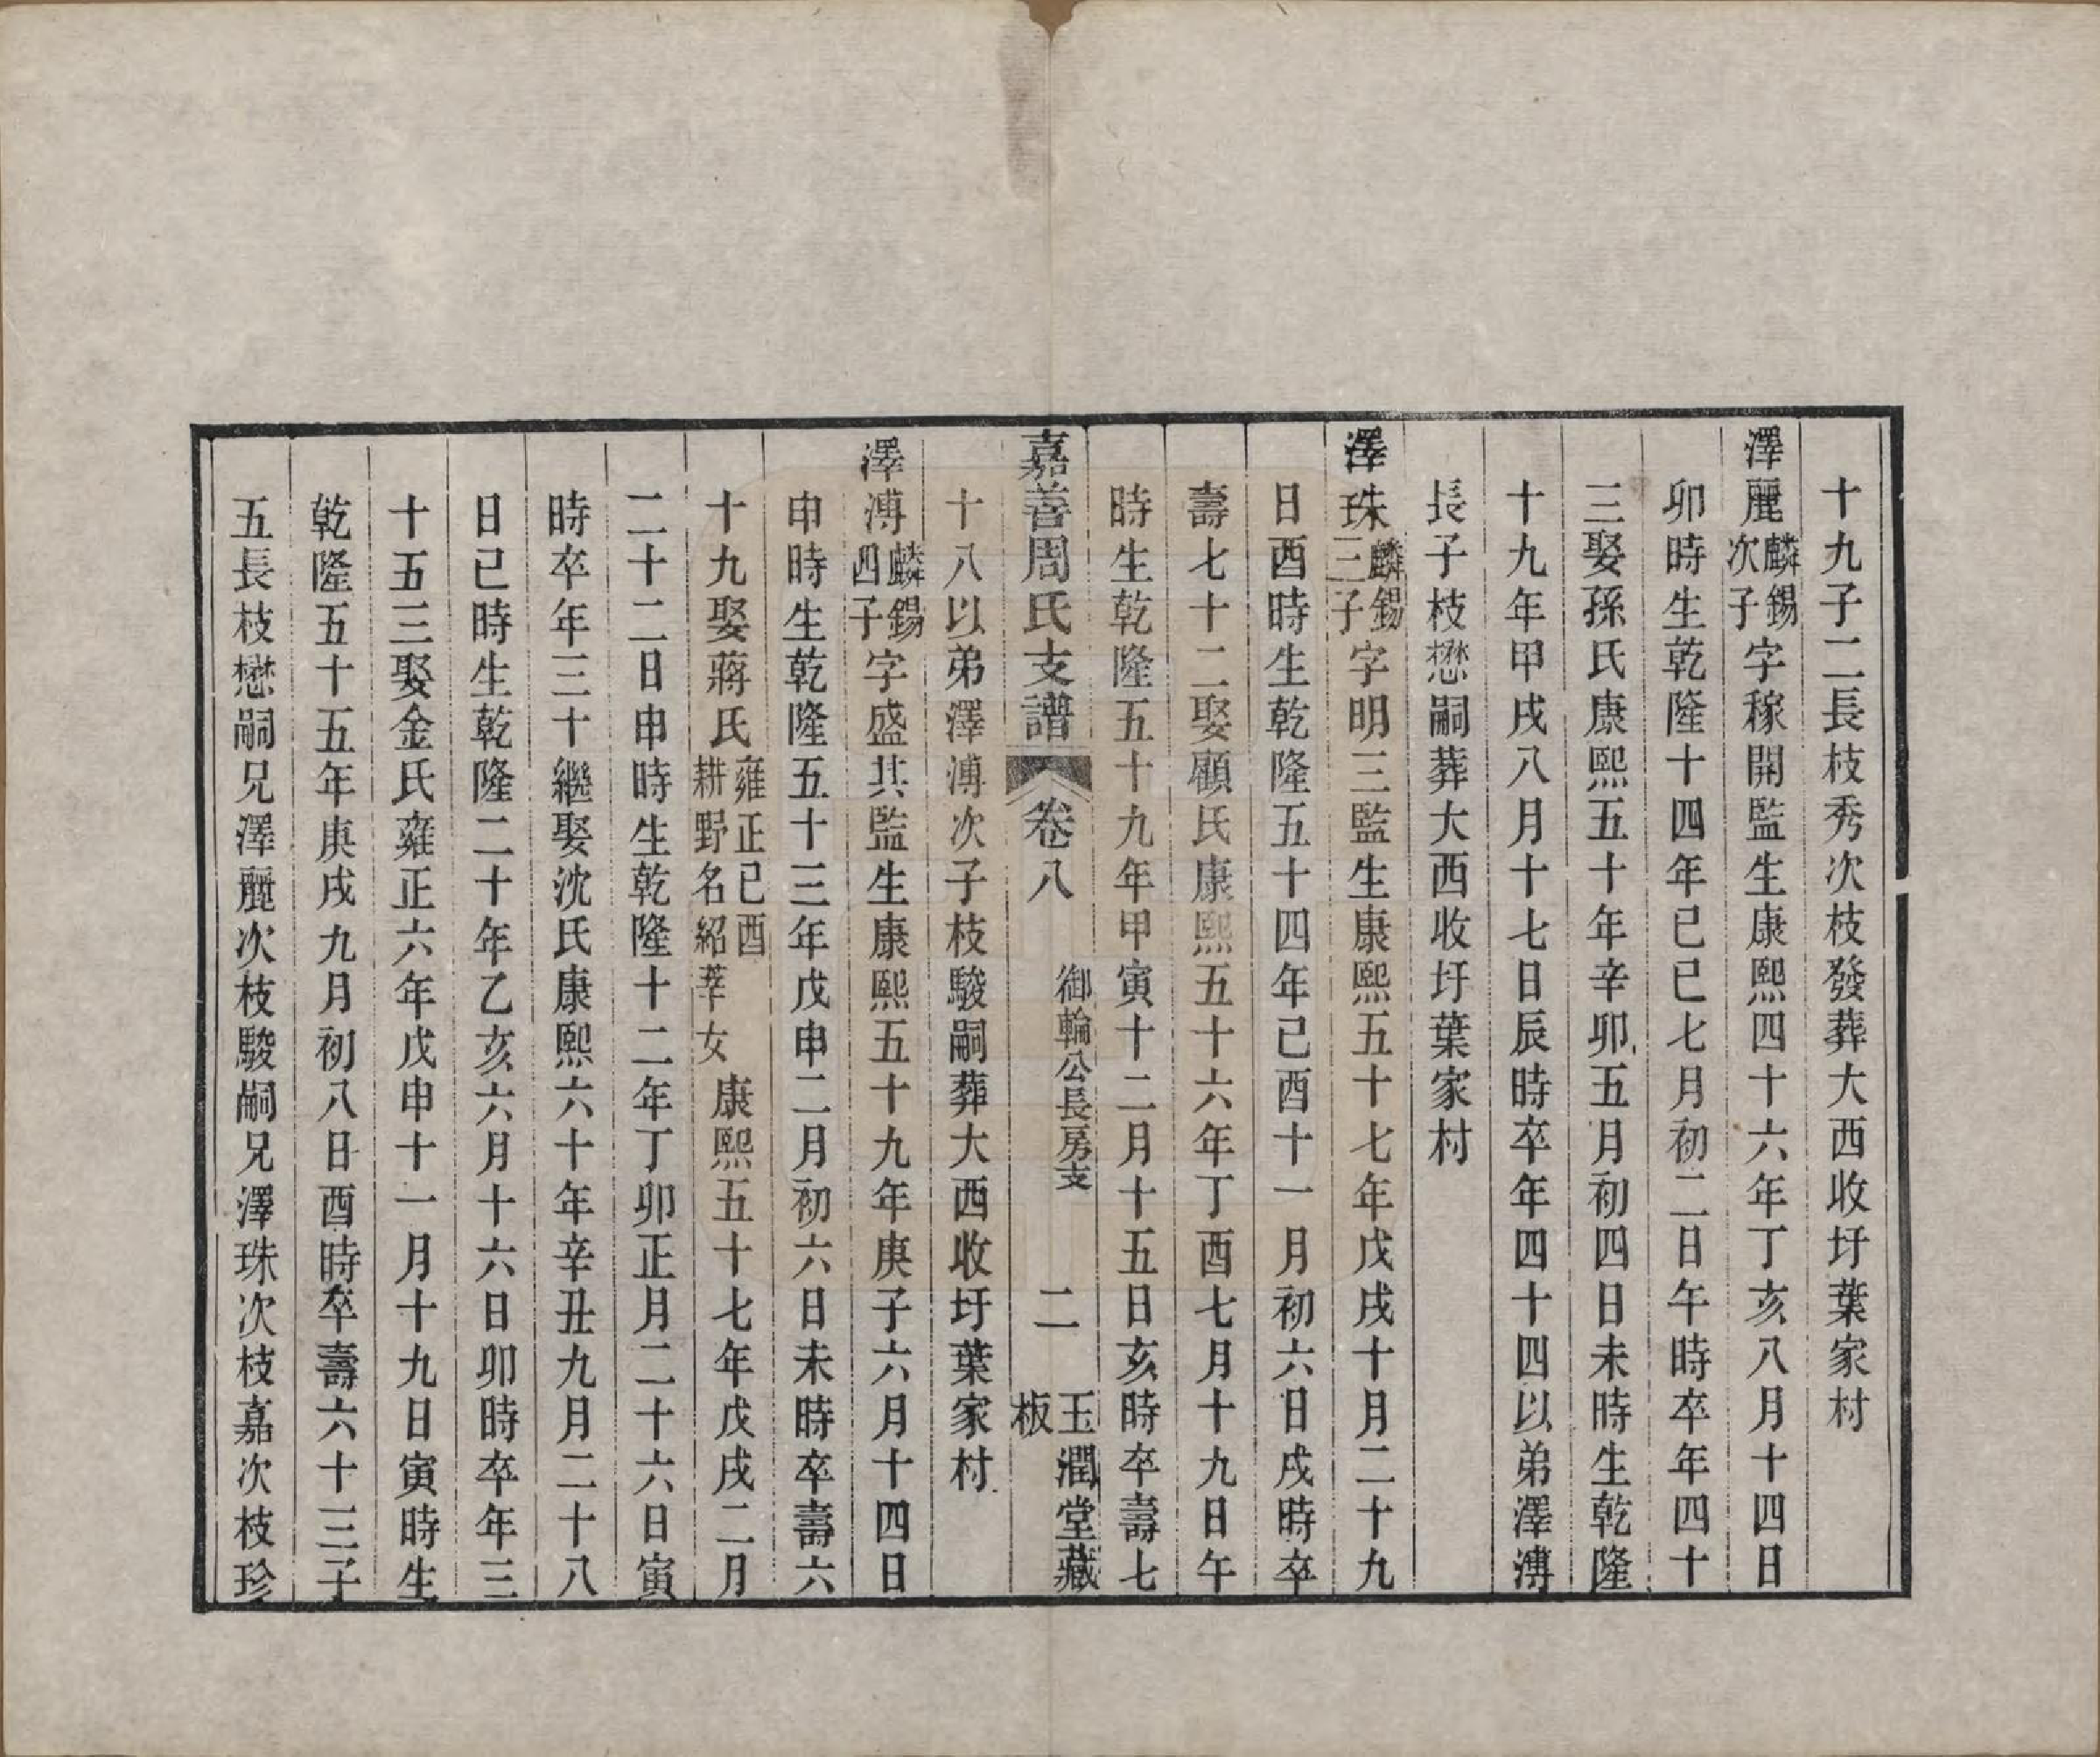 十九子二長枝秀次枝發葬大西收圩葉家村
澤麗麟錫次子字稼開監生康熙四十六年丁亥八月十四日
卯時生乾隆十四年己巳七月初二日午時卒年四十
三娶孫氏康熙五十年辛卯五月初四日未時生乾隆
十九年甲戌八月十七日辰時卒年四十四以弟澤溥
長子枝懋嗣葬大西收圩葉家村
澤珠麟錫三子字明三監生康熙五十七年戊戌十月二十九
日酉時生乾隆五十四年己酉十一月初六日戌時卒
壽七十二娶顧氏康熙五十六年丁酉七月十九日午
時生乾隆五十九年甲寅十二月十五日亥時卒壽七
嘉善周氏支譜 卷八 御輪公長房支 二 玉潤堂藏板
十八以弟澤溥次子枝駿嗣葬大西收圩葉家村
澤溥麟錫四子字盛共監生康熙五十九年庚子六月十四日
申時生乾隆五十三年戊申二月初六日未時卒壽六
十九娶蔣氏雍正己酉耕野名紹莘女康熙五十七年戊戌二月
二十二日申時生乾隆十二年丁卯正月二十六日寅
時卒年三十繼娶沈氏康熙六十年辛丑九月二十八
日巳時生乾隆二十年乙亥六月十六日卯時卒年三
十五三娶金氏雍正六年戊申十一月十九日寅時生
乾隆五十五年庚戌九月初八日酉時卒壽六十三子
五長枝懋嗣兄澤麗次枝駿嗣兄澤珠次枝嘉次枝珍